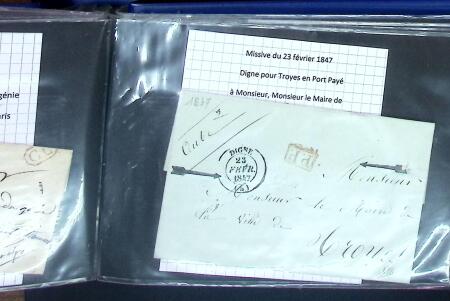 génie
ris
Missive du 23 février 1847
Digne pour Troyes en Port Payé
à Monsieur, Monsieur le Maire de
1847
Aube
DIGNE
23
FEVR.
1847
(4)
P.P.
Monsieur
Monsieur le Maire de
la Ville de
Troyes